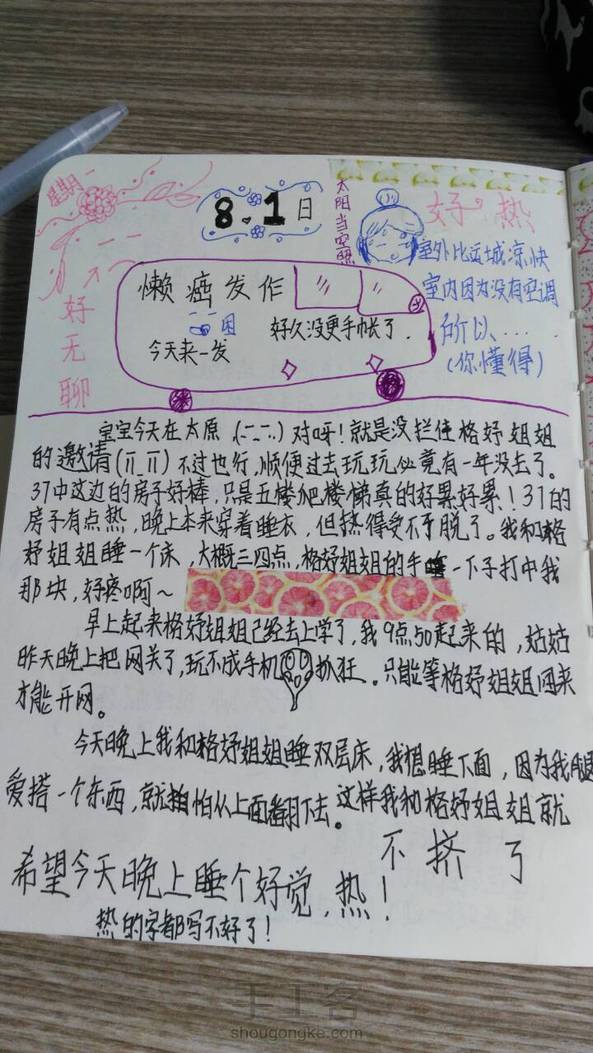 星期一
8.1日
太阳当空照
好热
好无聊
室外比运城凉快
室内因为没有空调
所以……
(你懂得)
懒癌发作
困
好久没更手帐了.
今天来一发
宝宝今天在太原 对呀!就是没拦住格妤姐姐
的邀请(π_π)不过也行,顺便过去玩玩 竟有一年没去了。
37中这边的房子好棒,只是五楼爬楼梯真的好累好累!37的
房子有点热,晚上本来穿着睡衣,但热得受不了脱了。我和格
妤姐姐睡一个床,大概三四点,格妤姐姐的手一下子打中我
那块,好疼啊~
早上起来格妤姐姐已经去上学了,我9点50起来的,姑姑
昨天晚上把网关了,玩不成手机 抓狂。只能等格妤姐姐回来
才能开网。
今天晚上我和格妤姐姐睡双层床,我想睡下面,因为我腿
爱搭一个东西,就怕从上面翻下去。这样我和格妤姐姐就
不挤了
希望今天晚上睡个好觉,热!
热的字都写不好了!
手工客
shougongke.com